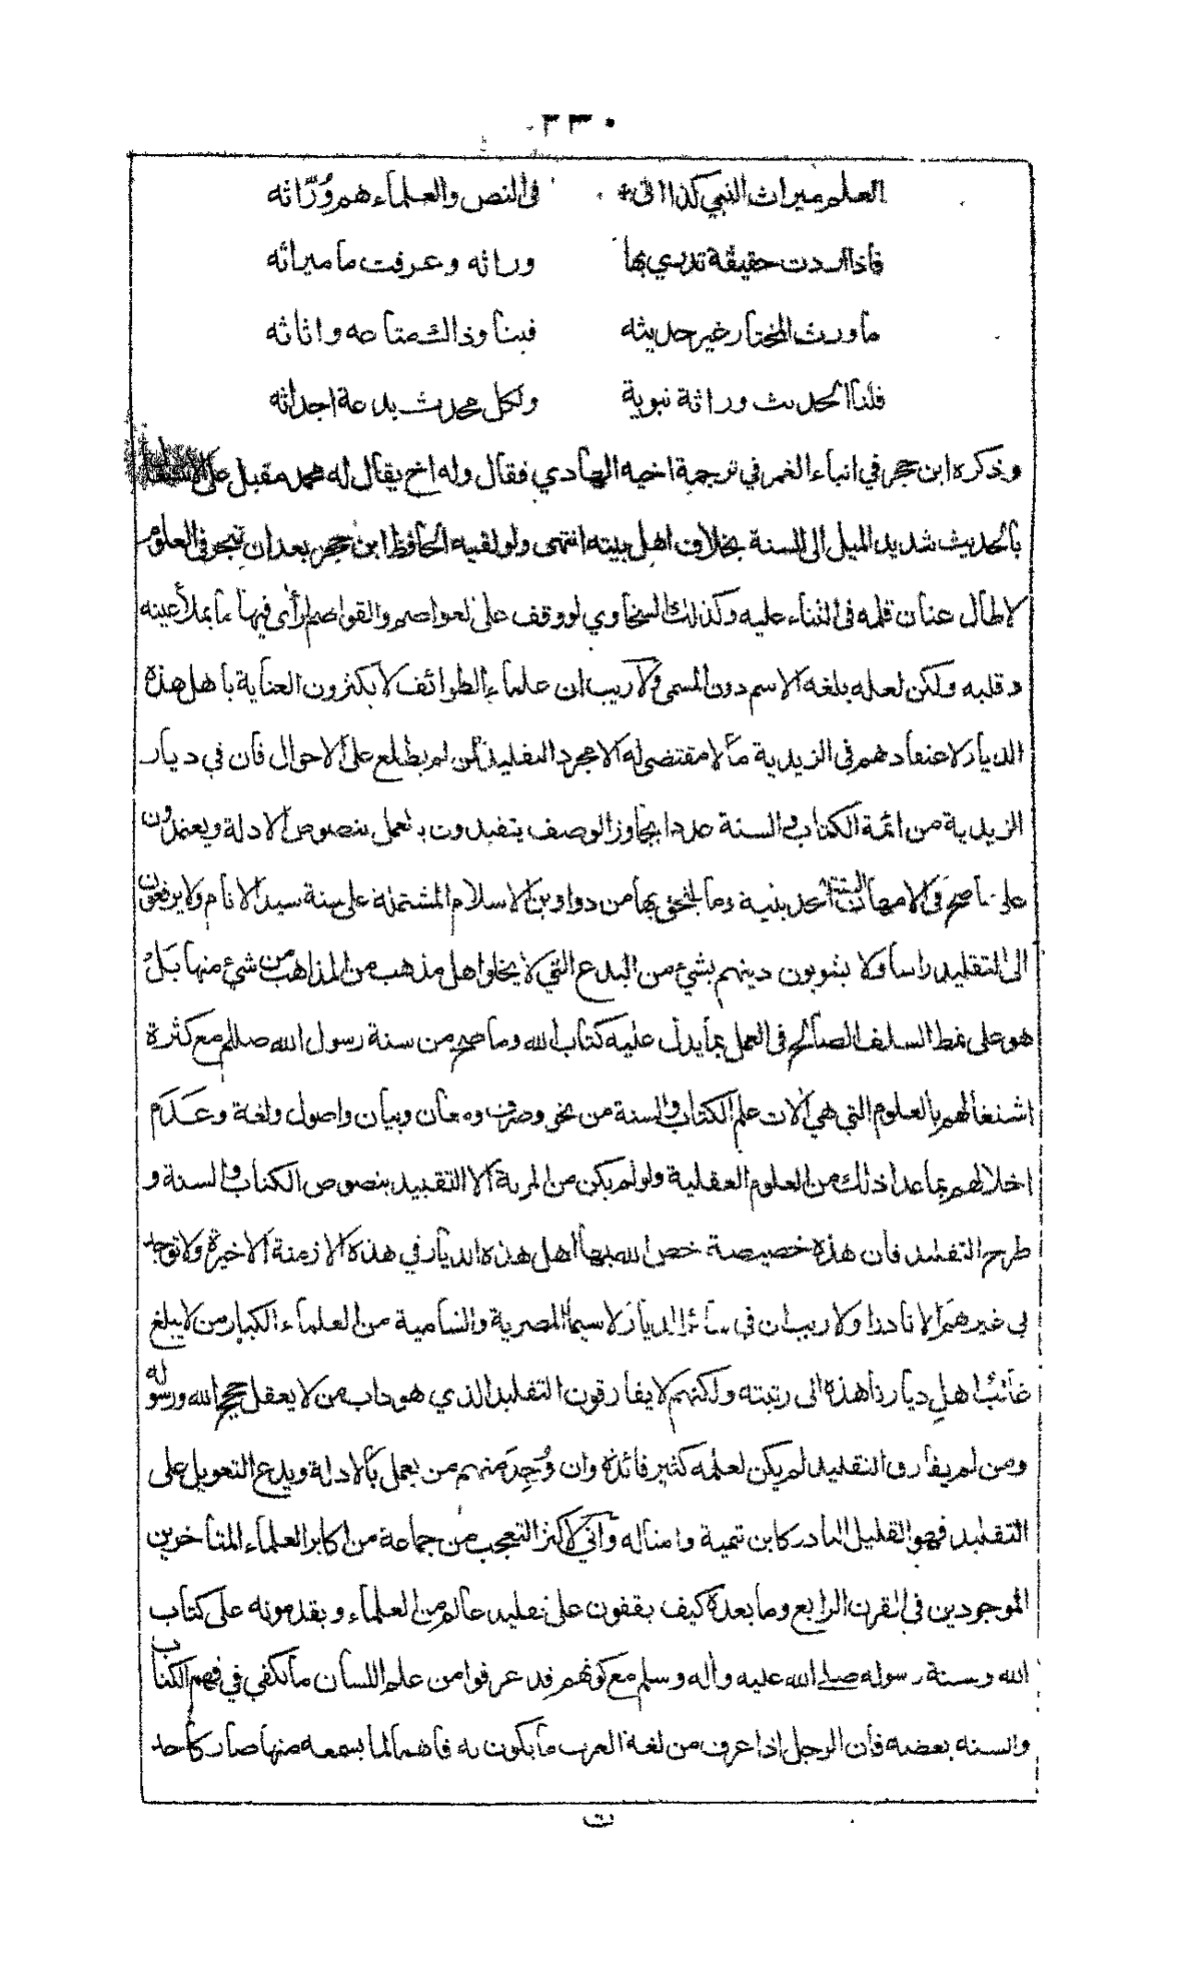 ٣٣٠
العلم ميراث النبي كذا اتى في النص والعلماء هم وُرَّاثه
فاذا اردت حقيقة تدري بها وراثه وعرفت ما ميراثه
ما ورث المختار غير حديثه فينا وذاك متاعه واثاثه
فلنا الحديث وراثة نبوية ولكل محدث بدعة احداثه
وذكره ابن حجر في انباء الغمر في ترجمة اخيه الهادي فقال وله اخ يقال له محمد مقبل على الاشتغال
بالحديث شديد الميل الى السنة بخلاف اهل بيته انتهى ولو لقيه الحافظ ابن حجر بعد ان تبحر في العلوم
لاطال عنان قلمه في الثناء عليه وكذلك السخاوي لو وقف على العواصم والقواصم لرأى فيها ما يملأ عينه
وقلبه ولكن لعله بلغه الاسم دون المسمى ولا ريب ان علماء الطوائف لا يكثرون العناية باهل هذه
الديار لاعتقادهم في الزيدية ما لا مقتضى له الا مجرد التقليد لمن لم يطلع على الاحوال فان في ديار
الزيدية من ائمة الكتاب والسنة عددا يجاوز الوصف يتقيدون بالعمل بنصوص الادلة ويعتمدون
على ما صح في الامهات الستة الحديثية وما يلتحق بها من دواوين الاسلام المشتملة على سنة سيد الانام ولا يرفعون
الى التقليد راسا ولا يشوبون دينهم بشئ من البدع التي لا يخلوا اهل مذهب من المذاهب من شئ منها بَلْ
هو على نمط السلف الصالح في العمل بما يدل عليه كتاب الله وما صح من سنة رسول الله صلالم مع كثرة
اشتغالهم بالعلوم التي هي آلات علم الكتاب والسنة من نحو وصرف ومعان وبيان واصول ولغة وعَدَم
اخلالهم بما عدا ذلك من العلوم العقلية ولو لم يكن من المزية الا التقييد بنصوص الكتاب والسنة و
طرح التقليد فان هذه خصيصة خص الله بها اهل هذه الديار في هذه الازمنة الاخيرة ولا توجد
في غيرهم الا نادرا ولا ريب ان في سائر الديار لا سيما المصرية والشامية من العلماء الكبار من لا يبلغ
غائبُ اهلِ ديارنا هذه الى رتبته ولكنهم لا يفارقون التقليد الذي هو داب من لا يعقل حجج الله ورسوله
ومن لم يفارق التقليد لم يكن لعلمه كثير فائدة وان وُجِدَ منهم من يعمل بالادلة ويدع التعويل على
التقليد فهو القليل النادر كابن تيمية وامثاله وآني لاكثر التعجب من جماعة من اكابر العلماء المتأخرين
الموجودين في القرن الرابع وما بعده كيف يقفون على تقليد عالم من العلماء ويقدمونه على كتاب
الله وسنة رسوله صلى الله عليه وآله وسلم مع كونهم قد عرفوا من علم اللسان ما يكفي في فهم الكتاب
والسنه بعضه فان الرجل اذا عرف من لغة العرب ما يكون به فاهما لما يسمعه منها صار كاحد
ت